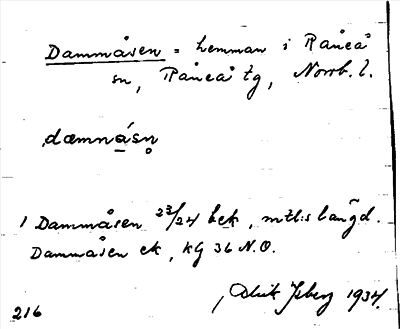 Dammåsen = hemman i Råneå
sn, Råneå tg, Norrb. l.
dæmnásn̥
1 Dammåsen 23/24 bek, mtl:s längd.
Dammåsen ek, kg 36 N.O.
1934.
216